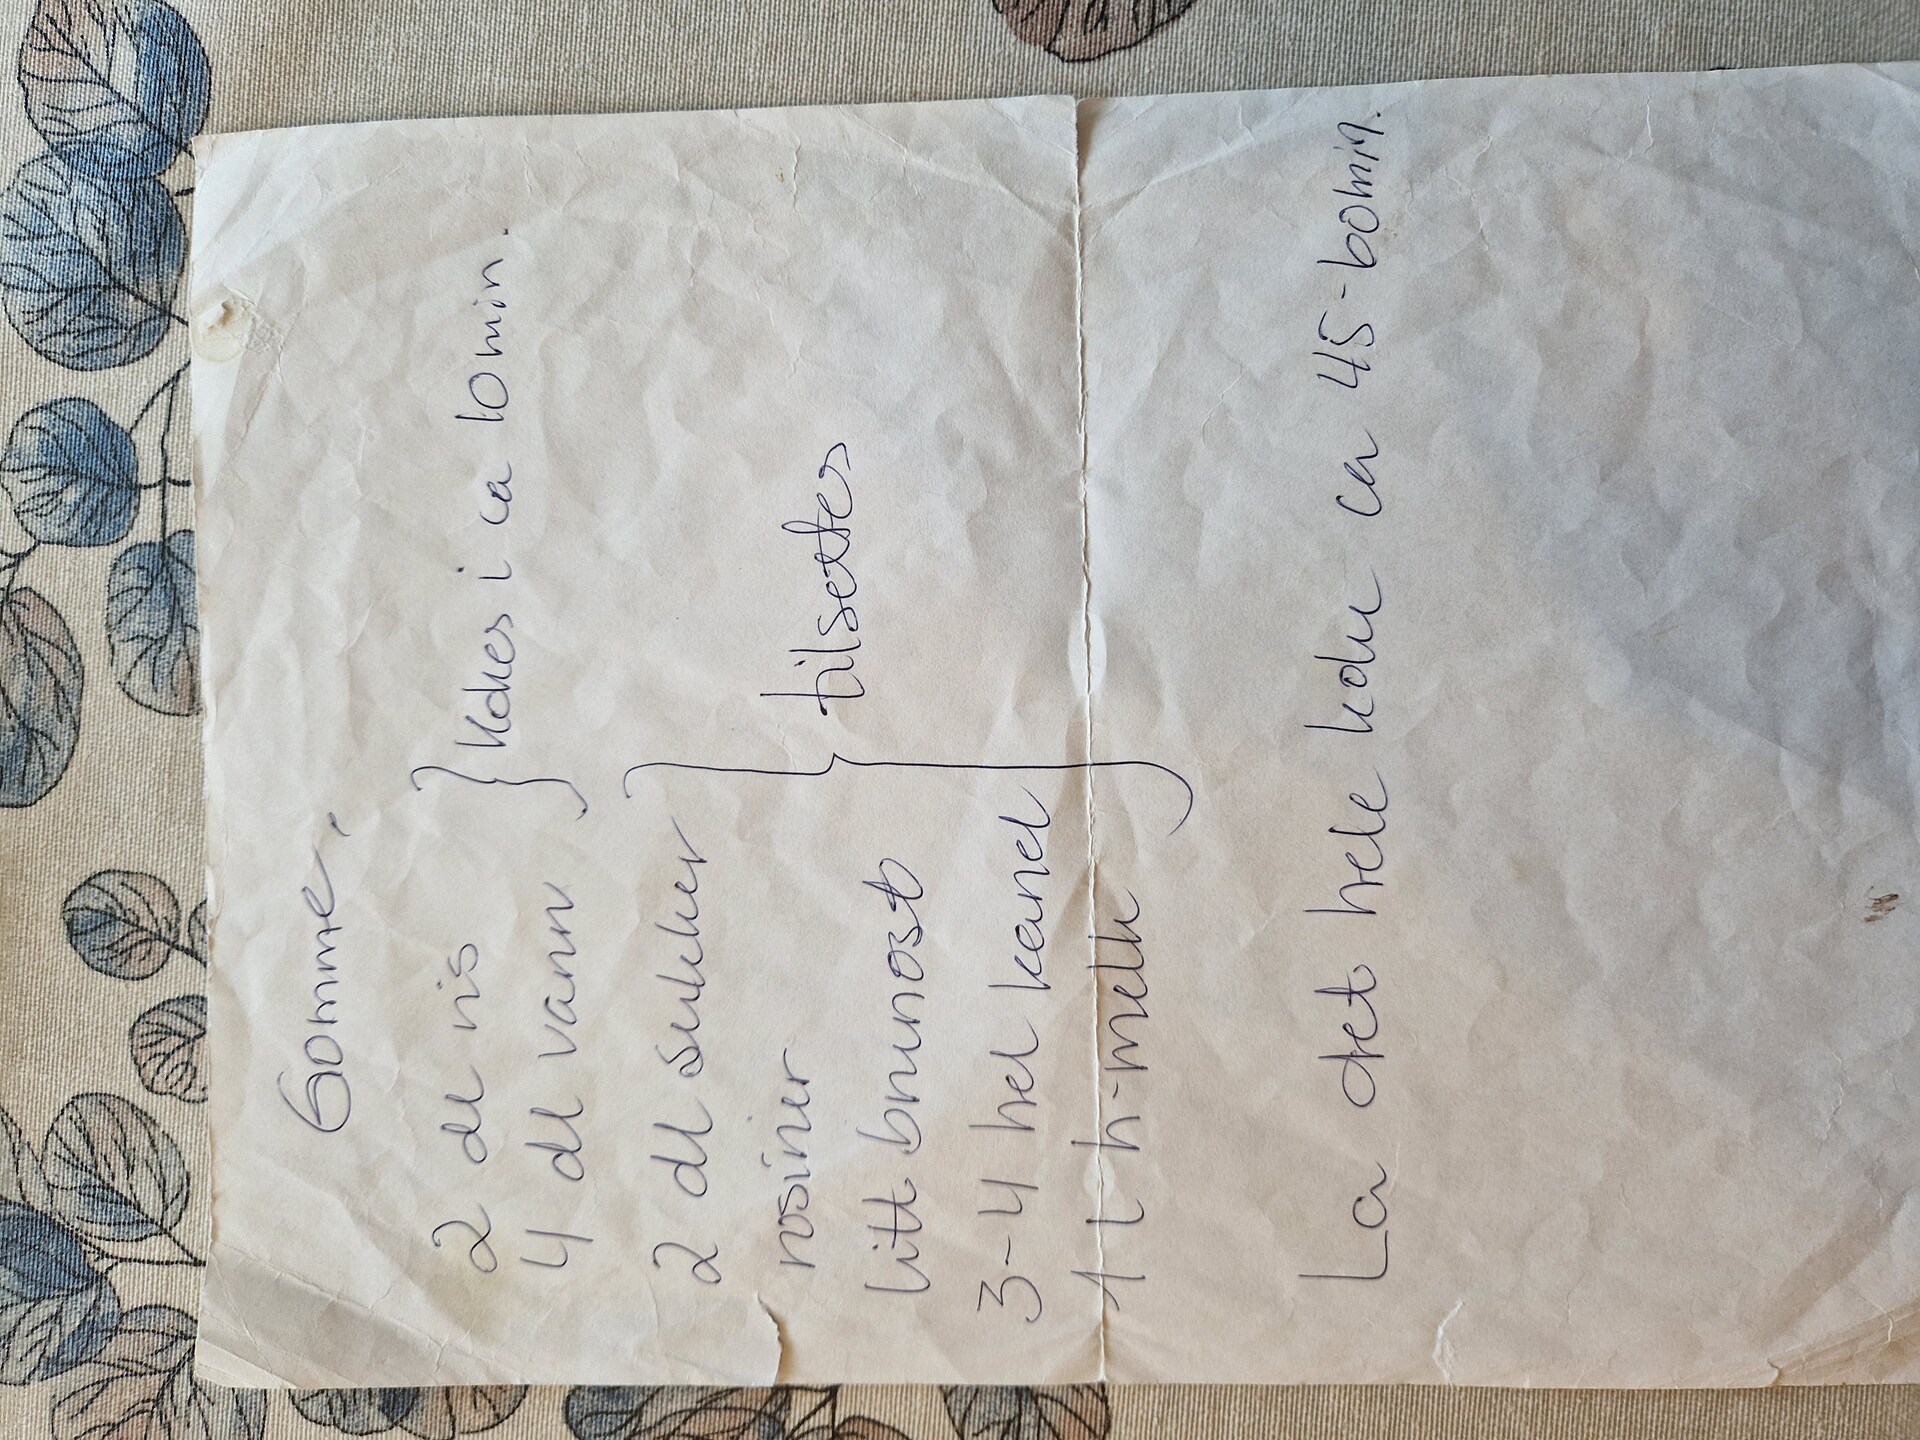 Gomme.
2 dl ris
4 dl vann
Kokes i ca 10 min.
2 dl sukker
rosiner
litt brunost
3-4 hel kanel
1 l h-melk
tilsettes
La det hele koke ca 45-60 min.